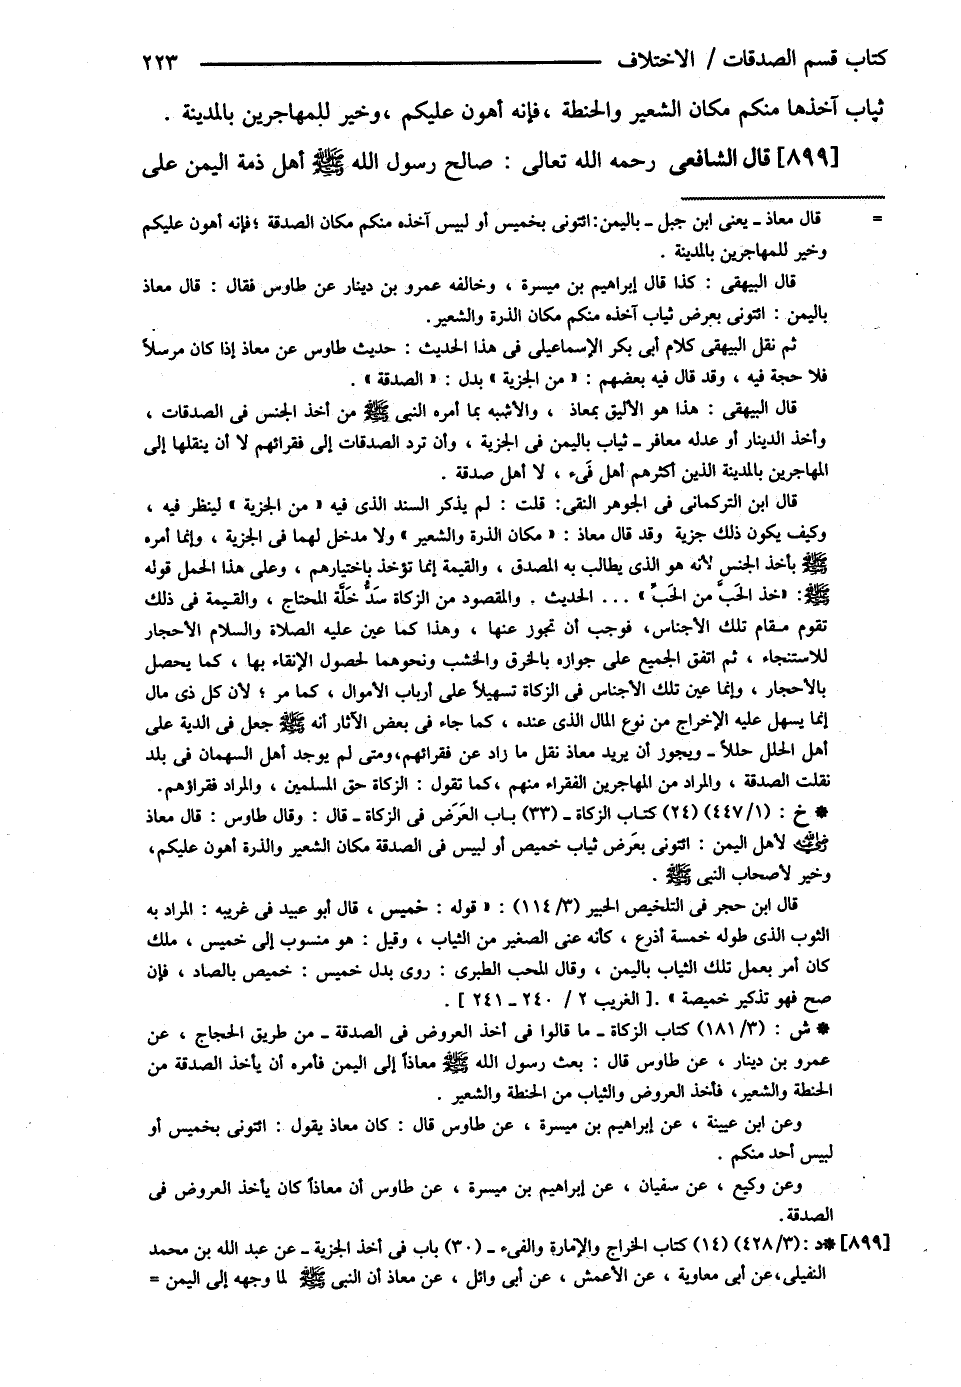 كتاب قسم الصدقات / الاختلاف ٢٢٣
ثياب آخذها منكم مكان الشعير والحنطة ، فإنه أهون عليكم ، وخير للمهاجرين بالمدينة .
[٨٩٩] قال الشافعى رحمه الله تعالى : صالح رسول الله ﷺ أهل ذمة اليمن على
= قال معاذ ـ يعنى ابن جبل ـ باليمن: ائتونى بخميس أو لبيس آخذه منكم مكان الصدقة ؛ فإنه أهون عليكم
وخير للمهاجرين بالمدينة .
قال البيهقى : كذا قال إبراهيم بن ميسرة ، وخالفه عمرو بن دينار عن طاوس فقال : قال معاذ
باليمن : ائتونى بعرض ثياب آخذه منكم مكان الذرة والشعير.
ثم نقل البيهقى كلام أبى بكر الإسماعيلى فى هذا الحديث : حديث طاوس عن معاذ إذا كان مرسلاً
فلا حجة فيه ، وقد قال فيه بعضهم : « من الجزية » بدل : « الصدقة » .
قال البيهقى : هذا هو الأليق بمعاذ ، والأشبه بما أمره النبى ﷺ من أخذ الجنس فى الصدقات ،
وأخذ الدينار أو عدله معافر ـ ثياب باليمن فى الجزية ، وأن ترد الصدقات إلى فقرائهم لا أن ينقلها إلى
المهاجرين بالمدينة الذين أكثرهم أهل فَىء ، لا أهل صدقة .
قال ابن التركمانى فى الجوهر النقى: قلت : لم يذكر السند الذى فيه « من الجزية » لينظر فيه ،
وكيف يكون ذلك جزية وقد قال معاذ : « مكان الذرة والشعير » ولا مدخل لهما فى الجزية ، وإنما أمره
ﷺ بأخذ الجنس لأنه هو الذى يطالب به المصدق ، والقيمة إنما تؤخذ باختيارهم ، وعلى هذا الحمل قوله
ﷺ: «خذ الحَبَّ من الحَبِّ » . . . الحديث . والمقصود من الزكاة سَدُّ خَلَّة المحتاج ، والقيمة فى ذلك
تقوم مقام تلك الأجناس، فوجب أن تجوز عنها ، وهذا كما عين عليه الصلاة والسلام الأحجار
للاستنجاء ، ثم اتفق الجميع على جوازه بالخرق والخشب ونحوهما لحصول الإنقاء بها ، كما يحصل
بالأحجار ، وإنما عين تلك الأجناس فى الزكاة تسهيلاً على أرباب الأموال ، كما مر ؛ لأن كل ذى مال
إنما يسهل عليه الإخراج من نوع المال الذى عنده ، كما جاء فى بعض الآثار أنه ﷺ جعل فى الدية على
أهل الحلل حللاً ـ ويجوز أن يريد معاذ نقل ما زاد عن فقرائهم،ومتى لم يوجد أهل السهمان فى بلد
نقلت الصدقة ، والمراد من المهاجرين الفقراء منهم ،كما تقول : الزكاة حق المسلمين ، والمراد فقراؤهم.
* خ : (١/ ٤٤٧) (٢٤) كتاب الزكاة ـ (٣٣) باب العَرَض فى الزكاة ـ قال : وقال طاوس : قال معاذ
رضي الله عنه لأهل اليمن : ائتونى بعَرض ثياب خميص أو لبيس فى الصدقة مكان الشعير والذرة أهون عليكم،
وخير لأصحاب النبى ﷺ .
قال ابن حجر فى التلخيص الحبير (٣/ ١١٤) : « قوله : خميس ، قال أبو عبيد فى غريبه : المراد به
الثوب الذى طوله خمسة أذرع ، كأنه عنى الصغير من الثياب ، وقيل : هو منسوب إلى خميس ، ملك
كان أمر بعمل تلك الثياب باليمن ، وقال المحب الطبرى : روى بدل خميس : خميص بالصاد ، فإن
صح فهو تذكير خميصة » .[ الغريب ٢ / ٢٤٠ ـ ٢٤١ ] .
* ش : (٣/ ١٨١) كتاب الزكاة ـ ما قالوا فى أخذ العروض فى الصدقة ـ من طريق الحجاج ، عن
عمرو بن دينار ، عن طاوس قال : بعث رسول الله ﷺ معاذاً إلى اليمن فأمره أن يأخذ الصدقة من
الحنطة والشعير، فأخذ العروض والثياب من الحنطة والشعير .
وعن ابن عيينة ، عن إبراهيم بن ميسرة ، عن طاوس قال : كان معاذ يقول : ائتونى بخميس أو
لبيس أحد منكم .
وعن وكيع ، عن سفيان ، عن إبراهيم بن ميسرة ، عن طاوس أن معاذاً كان يأخذ العروض فى
الصدقة.
[٨٩٩] *د : (٣/ ٤٢٨) (١٤) كتاب الخراج والإمارة والفىء ـ (٣٠) باب فى أخذ الجزية ـ عن عبد الله بن محمد
النفيلى،عن أبى معاوية ، عن الأعمش ، عن أبى وائل ، عن معاذ أن النبى ﷺ لما وجهه إلى اليمن =